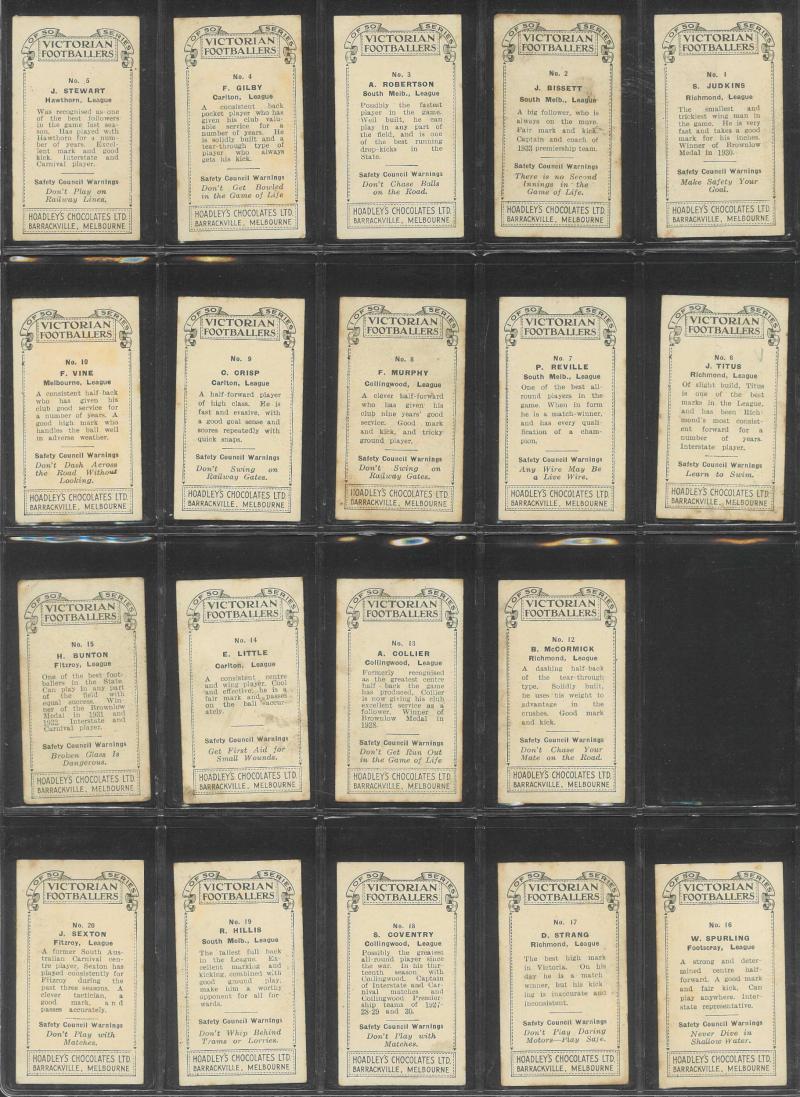 1 OF 50 SERIES
VICTORIAN
FOOTBALLERS
No. 5
J. STEWART
Hawthorn, League
Was recognised us one
of the best followers
in the game last sea-
son. Has played with
Hawthorn for a num-
ber of years. Excel-
lent mark and good
kick. Interstate and
Carnival player.
Safety Council Warnings
Don't Play on
Railway Lines.
HOADLEY'S CHOCOLATES LTD.
BARRACKVILLE, MELBOURNE
1 OF 50 SERIES
VICTORIAN
FOOTBALLERS
No. 4
F. GILBY
Carlton, League
A consistent back
pocket player who has
given his club valu-
able service for a
number of years. He
is solidly built and a
tear-through type of
player who always
gets his kick.
Safety Council Warnings
Don't Get Bowled
in the Game of Life
HOADLEY'S CHOCOLATES LTD.
BARRACKVILLE, MELBOURNE
1 OF 50 SERIES
VICTORIAN
FOOTBALLERS
No. 3
A. ROBERTSON
South Melb., League
Possibly the fastest
player in the game.
Well built, he can
play in any part of
the field, and is one
of the best running
drop-kicks in the
State.
Safety Council Warnings
Don't Chase Balls
on the Road.
HOADLEY'S CHOCOLATES LTD.
BARRACKVILLE, MELBOURNE
1 OF 50 SERIES
VICTORIAN
FOOTBALLERS
No. 2
J. BISSETT
South Melb., League
A big follower, who is
always on the move.
Fair mark and kick.
Captain and coach of
1933 premiership team.
Safety Council Warnings
There is no Second
Innings in the
Game of Life.
HOADLEY'S CHOCOLATES LTD.
BARRACKVILLE, MELBOURNE
1 OF 50 SERIES
VICTORIAN
FOOTBALLERS
No. 1
S. JUDKINS
Richmond, League
The smallest and
trickiest wing man in
the game. He is very
fast and takes a good
mark for his inches.
Winner of Brownlow
Medal in 1930.
Safety Council Warnings
Make Safety Your
Goal.
HOADLEY'S CHOCOLATES LTD.
BARRACKVILLE, MELBOURNE
1 OF 50 SERIES
VICTORIAN
FOOTBALLERS
No. 10
F. VINE
Melbourne, League
A consistent half-back
who has given his
club good service for
a number of years. A
good high mark who
handles the ball well
in adverse weather.
Safety Council Warnings
Don't Dash Across
the Road Without
Looking.
HOADLEY'S CHOCOLATES LTD.
BARRACKVILLE, MELBOURNE
1 OF 50 SERIES
VICTORIAN
FOOTBALLERS
No. 9
C. CRISP
Carlton, League
A half-forward player
of high class. He is
fast and evasive, with
a good goal sense and
scores repeatedly with
quick snaps.
Safety Council Warnings
Don't Swing on
Railway Gates.
HOADLEY'S CHOCOLATES LTD.
BARRACKVILLE, MELBOURNE
1 OF 50 SERIES
VICTORIAN
FOOTBALLERS
No. 8
F. MURPHY
Collingwood, League
A clever half-forward
who has given his
club nine years' good
service. Good mark
and kick, and tricky
ground player.
Safety Council Warnings
Don't Swing on
Railway Gates.
HOADLEY'S CHOCOLATES LTD.
BARRACKVILLE, MELBOURNE
1 OF 50 SERIES
VICTORIAN
FOOTBALLERS
No. 7
P. REVILLE
South Melb., League
One of the best all-
round players in the
game. When in form
he is a match-winner,
and has every quali-
fication of a cham-
pion.
Safety Council Warnings
Any Wire May Be
a Live Wire.
HOADLEY'S CHOCOLATES LTD.
BARRACKVILLE, MELBOURNE
1 OF 50 SERIES
VICTORIAN
FOOTBALLERS
No. 6
J. TITUS
Richmond, League
Of slight build, Titus
is one of the best
marks in the League,
and has been Rich-
mond's most consist-
ent forward for a
number of years.
Interstate player.
Safety Council Warnings
Learn to Swim.
HOADLEY'S CHOCOLATES LTD.
BARRACKVILLE, MELBOURNE
1 OF 50 SERIES
VICTORIAN
FOOTBALLERS
No. 15
H. BUNTON
Fitzroy, League
One of the best foot-
ballers in the State.
Can play in any part
of the field with
equal success. Win-
ner of the Brownlow
Medal in 1931 and
1932 Interstate and
Carnival player.
Safety Council Warnings
Broken Glass Is
Dangerous.
HOADLEY'S CHOCOLATES LTD.
BARRACKVILLE, MELBOURNE
1 OF 50 SERIES
VICTORIAN
FOOTBALLERS
No. 14
E. LITTLE
Carlton, League
A consistent centre
and wing player. Cool
and effective, he is a
fair mark and passes
on the ball accur-
ately.
Safety Council Warnings
Get First Aid for
Small Wounds.
HOADLEY'S CHOCOLATES LTD.
BARRACKVILLE, MELBOURNE
1 OF 50 SERIES
VICTORIAN
FOOTBALLERS
No. 13
A. COLLIER
Collingwood, League
Formerly recognised
as the greatest centre
half-back the game
has produced, Collier
is now giving his club
excellent service as a
follower. Winner of
Brownlow Medal in
1928.
Safety Council Warnings
Don't Get Run Out
in the Game of Life
HOADLEY'S CHOCOLATES LTD.
BARRACKVILLE, MELBOURNE
1 OF 50 SERIES
VICTORIAN
FOOTBALLERS
No. 12
B. McCORMICK
Richmond, League
A dashing half-back
of the tear-through
type. Solidly built,
he uses his weight to
advantage in the
crushes. Good mark
and kick.
Safety Council Warnings
Don't Chase Your
Mate on the Road.
HOADLEY'S CHOCOLATES LTD.
BARRACKVILLE, MELBOURNE
1 OF 50 SERIES
VICTORIAN
FOOTBALLERS
No. 20
J. SEXTON
Fitzroy, League
A former South Aus-
tralian Carnival cen-
tre player, Sexton has
played consistently for
Fitzroy during the
past three seasons. A
clever tactician, a
good mark, and
passes accurately.
Safety Council Warnings
Don't Play with
Matches.
HOADLEY'S CHOCOLATES LTD.
BARRACKVILLE, MELBOURNE
1 OF 50 SERIES
VICTORIAN
FOOTBALLERS
No. 19
R. HILLIS
South Melb., League
The tallest full back
in the League. Ex-
cellent marking and
kicking, combined with
good ground play,
make him a worthy
opponent for all for-
wards.
Safety Council Warnings
Don't Whip Behind
Trams or Lorries.
HOADLEY'S CHOCOLATES LTD.
BARRACKVILLE, MELBOURNE
1 OF 50 SERIES
VICTORIAN
FOOTBALLERS
No. 18
S. COVENTRY
Collingwood, League
Possibly the greatest
all-round player since
the war. In his thir-
teenth season with
Collingwood. Captain
of Interstate and Car-
nival matches and
Collingwood Premier-
ship teams of 1927-
28-29 and 30.
Safety Council Warnings
Don't Play with
Matches.
HOADLEY'S CHOCOLATES LTD.
BARRACKVILLE, MELBOURNE
1 OF 50 SERIES
VICTORIAN
FOOTBALLERS
No. 17
D. STRANG
Richmond, League
The best high mark
in Victoria. On his
day he is a match
winner, but his kick
ing is inaccurate and
inconsistent.
Safety Council Warnings
Don't Play Daring
Motors—Play Safe.
HOADLEY'S CHOCOLATES LTD.
BARRACKVILLE, MELBOURNE
1 OF 50 SERIES
VICTORIAN
FOOTBALLERS
No. 16
W. SPURLING
Footscray, League
A strong and deter-
mined centre half-
forward. A good mark
and fair kick. Can
play anywhere. Inter-
state representative.
Safety Council Warnings
Never Dive in
Shallow Water.
HOADLEY'S CHOCOLATES LTD.
BARRACKVILLE, MELBOURNE